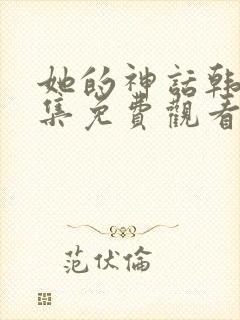 她的神話韩
集免費觀看
范伏倫